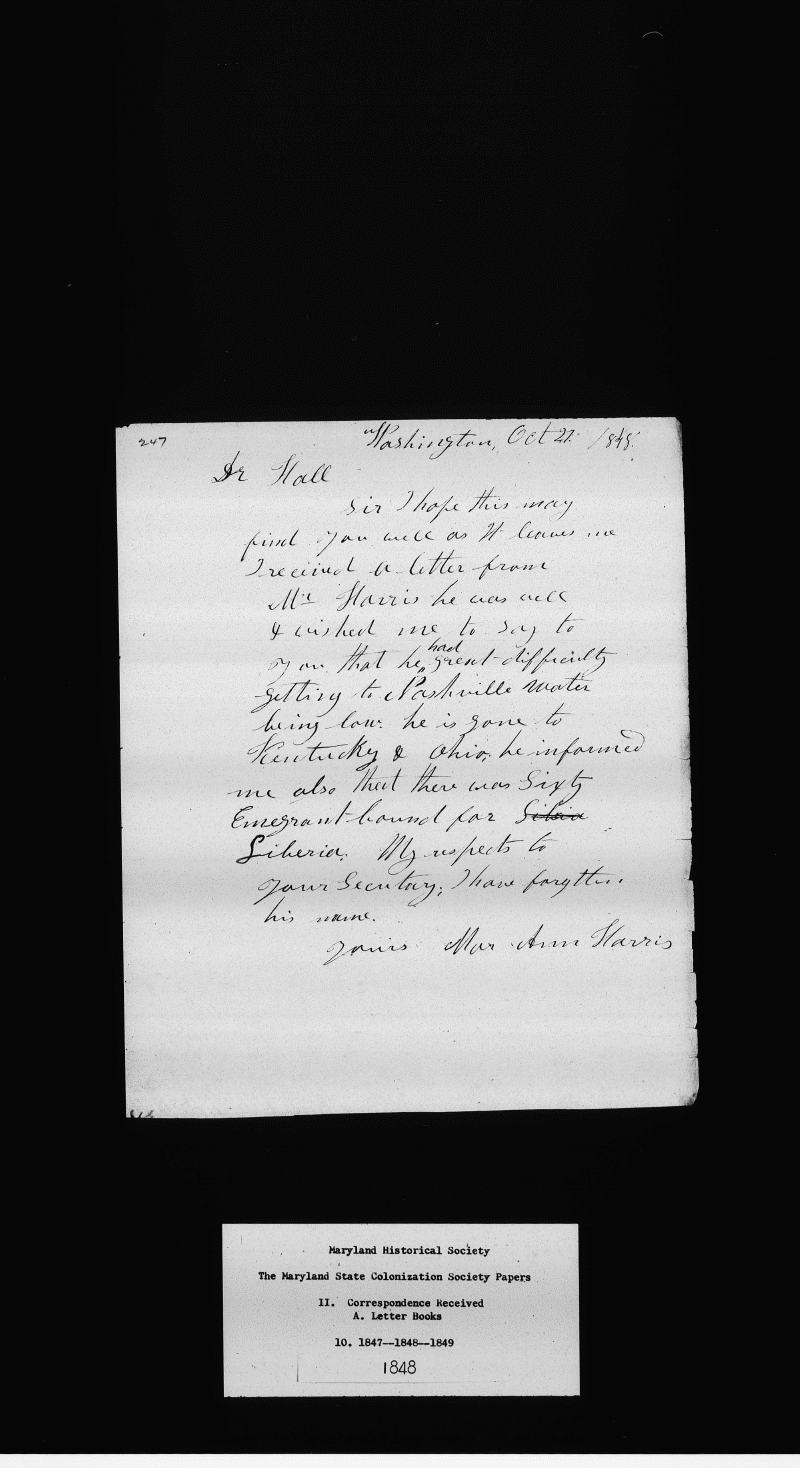 247
Washington, Oct 21. 1848.
Dr Hall
Sir I hope this may
find you well as It leaves me
I received a letter from
Mr Harris he was well
& wished me to say to
you that he had great difficulty
getting to Nashville water
being low. he is gone to
Kentucky & Ohio, he informed
me also that there was Sixty
Emegrant bound for Sibria
Liberia. My respects to
your Secretary; I have forgotten
his name.
Yours Mar Ann Harris
Maryland Historical Society
The Maryland State Colonization Society Papers
II. Correspondence Received
A. Letter Books
10. 1847--1848--1849
1848